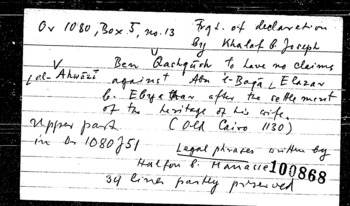 Or 1080, Box 5, no. 13 Frgt. of declaration
by Khalaf b. Joseph
Ben Qashqūsh to have no claims
al-Ahwāzī against Abu 'l-Baqā, Elazar
b. after the settlement
of the heritage of his wife.
Upper part (Old Cairo 1130)
in Or 1080 J51 Legal phrases written by
Halfon b. Manasse 100868
34 lines partly preserved